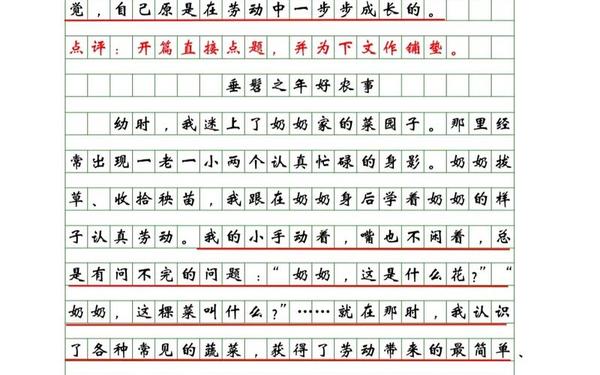 觉，自己原是在劳动中一步步成长的。
点评：开篇直接点题，并为下文作铺垫。
垂髫之年好农事
幼时，我迷上了奶奶家的菜园子。那里经
常出现一老一小两个认真忙碌的身影。奶奶拔
草、收拾秧苗，我跟在奶奶身后学着奶奶的样
子认真劳动。我的小手动着，嘴也不闲着，总
是有问不完的问题：“奶奶，这是什么花？”“
奶奶，这棵菜叫什么？”……就在那时，我认识
了各种常见的蔬菜，获得了劳动带来的最简单、